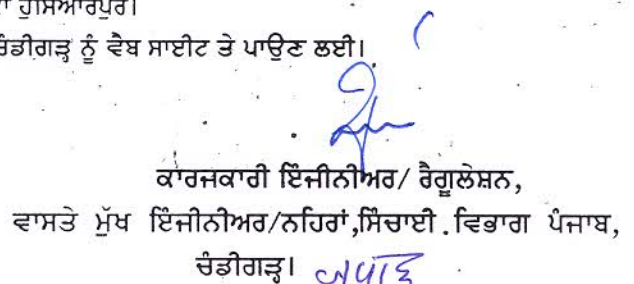 ਹੁਸਿਆਰਪੁਰ।
ਚੰਡੀਗੜ੍ਹ ਨੂੰ ਵੈਬ ਸਾਈਟ ਤੇ ਪਾਉਣ ਲਈ।
ਕਾਰਜਕਾਰੀ ਇੰਜੀਨੀਅਰ/ ਰੈਗੂਲੇਸ਼ਨ,
ਵਾਸਤੇ ਮੁੱਖ ਇੰਜੀਨੀਅਰ/ਨਹਿਰਾਂ,ਸਿੰਚਾਈ ਵਿਭਾਗ ਪੰਜਾਬ,
ਚੰਡੀਗੜ੍ਹ।